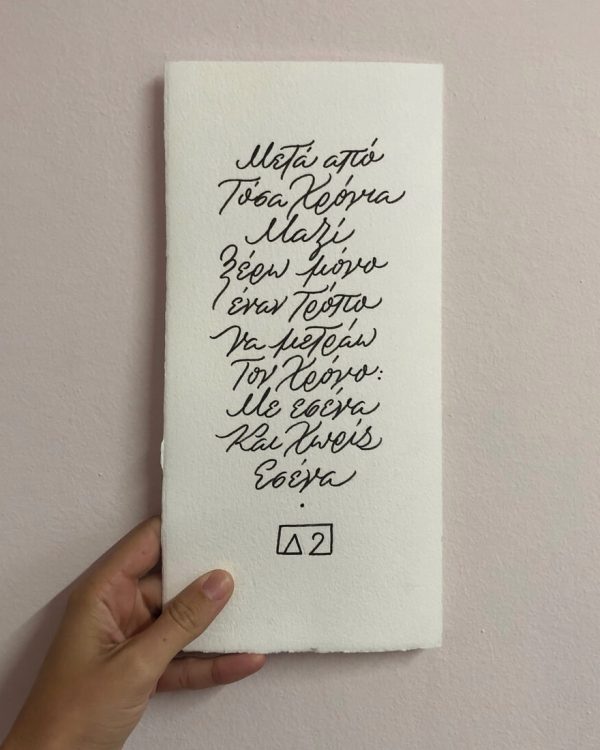 Μετά από
Τόσα Χρόνια
Μαζί
ξέρω μόνο
έναν Τρόπο
να μετράω
Τον Χρόνο:
Με εσένα
Και Χωρίς
Εσένα
.
Δ2